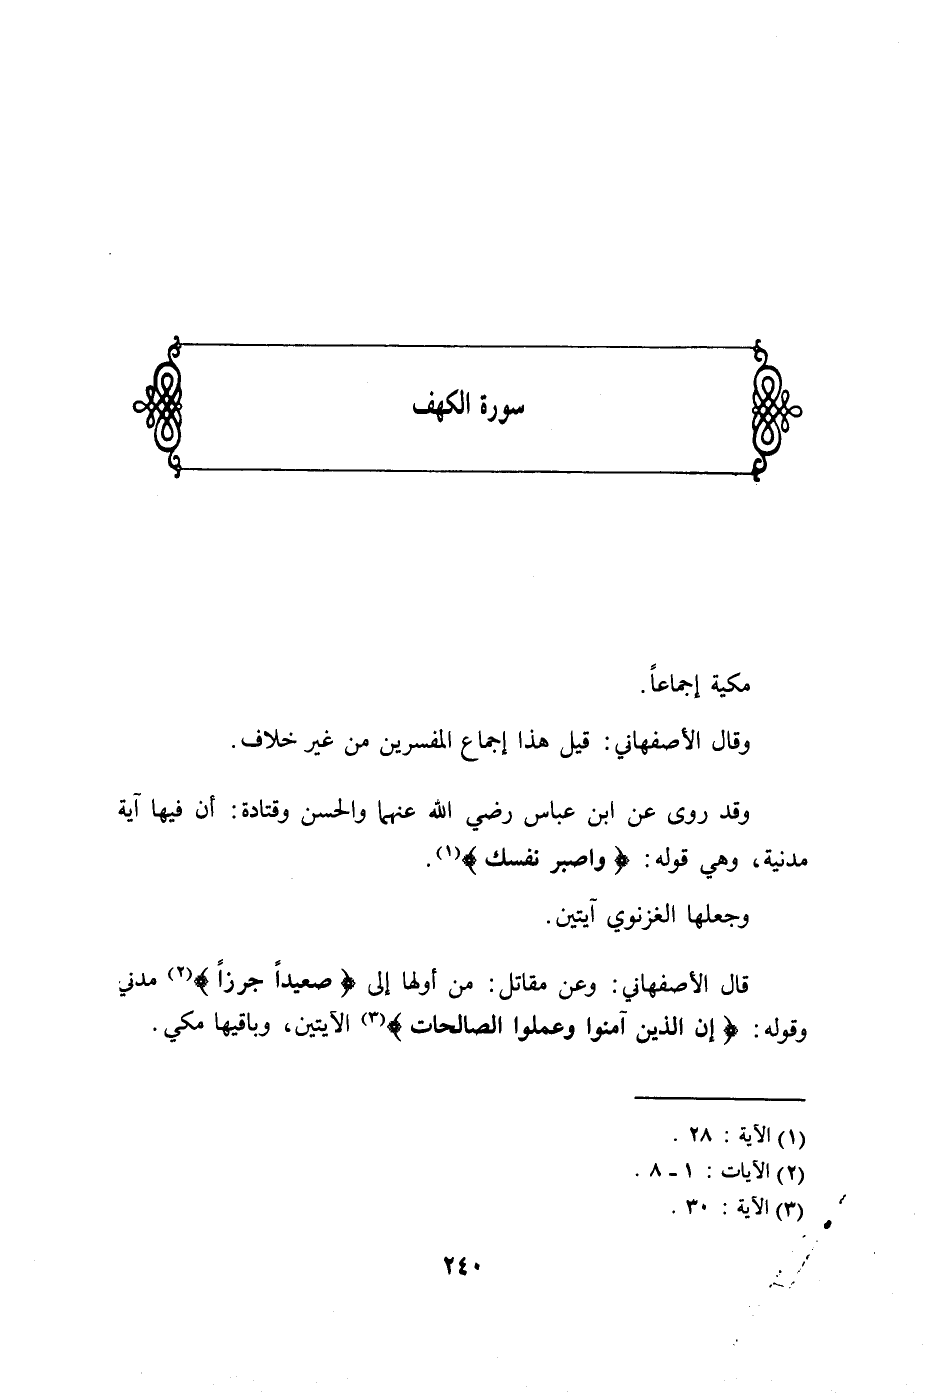 سورة الكهف
مكية إجماعاً.
وقال الأصفهاني: قيل هذا إجماع المفسرين من غير خلاف.
وقد روى عن ابن عباس رضي الله عنهما والحسن وقتادة: أن فيها آية
مدنية، وهي قوله: ﴿ واصبر نفسك ﴾(١).
وجعلها الغزنوي آيتين.
قال الأصفهاني: وعن مقاتل: من أولها إلى ﴿ صعيداً جرزاً ﴾(٢) مدني
وقوله: ﴿ إن الذين آمنوا وعملوا الصالحات ﴾(٣) الآيتين، وباقيها مكي.
(١) الآية : ٢٨ .
(٢) الآيات : ١ - ٨ .
(٣) الآية : ٣٠ .
٢٤٠